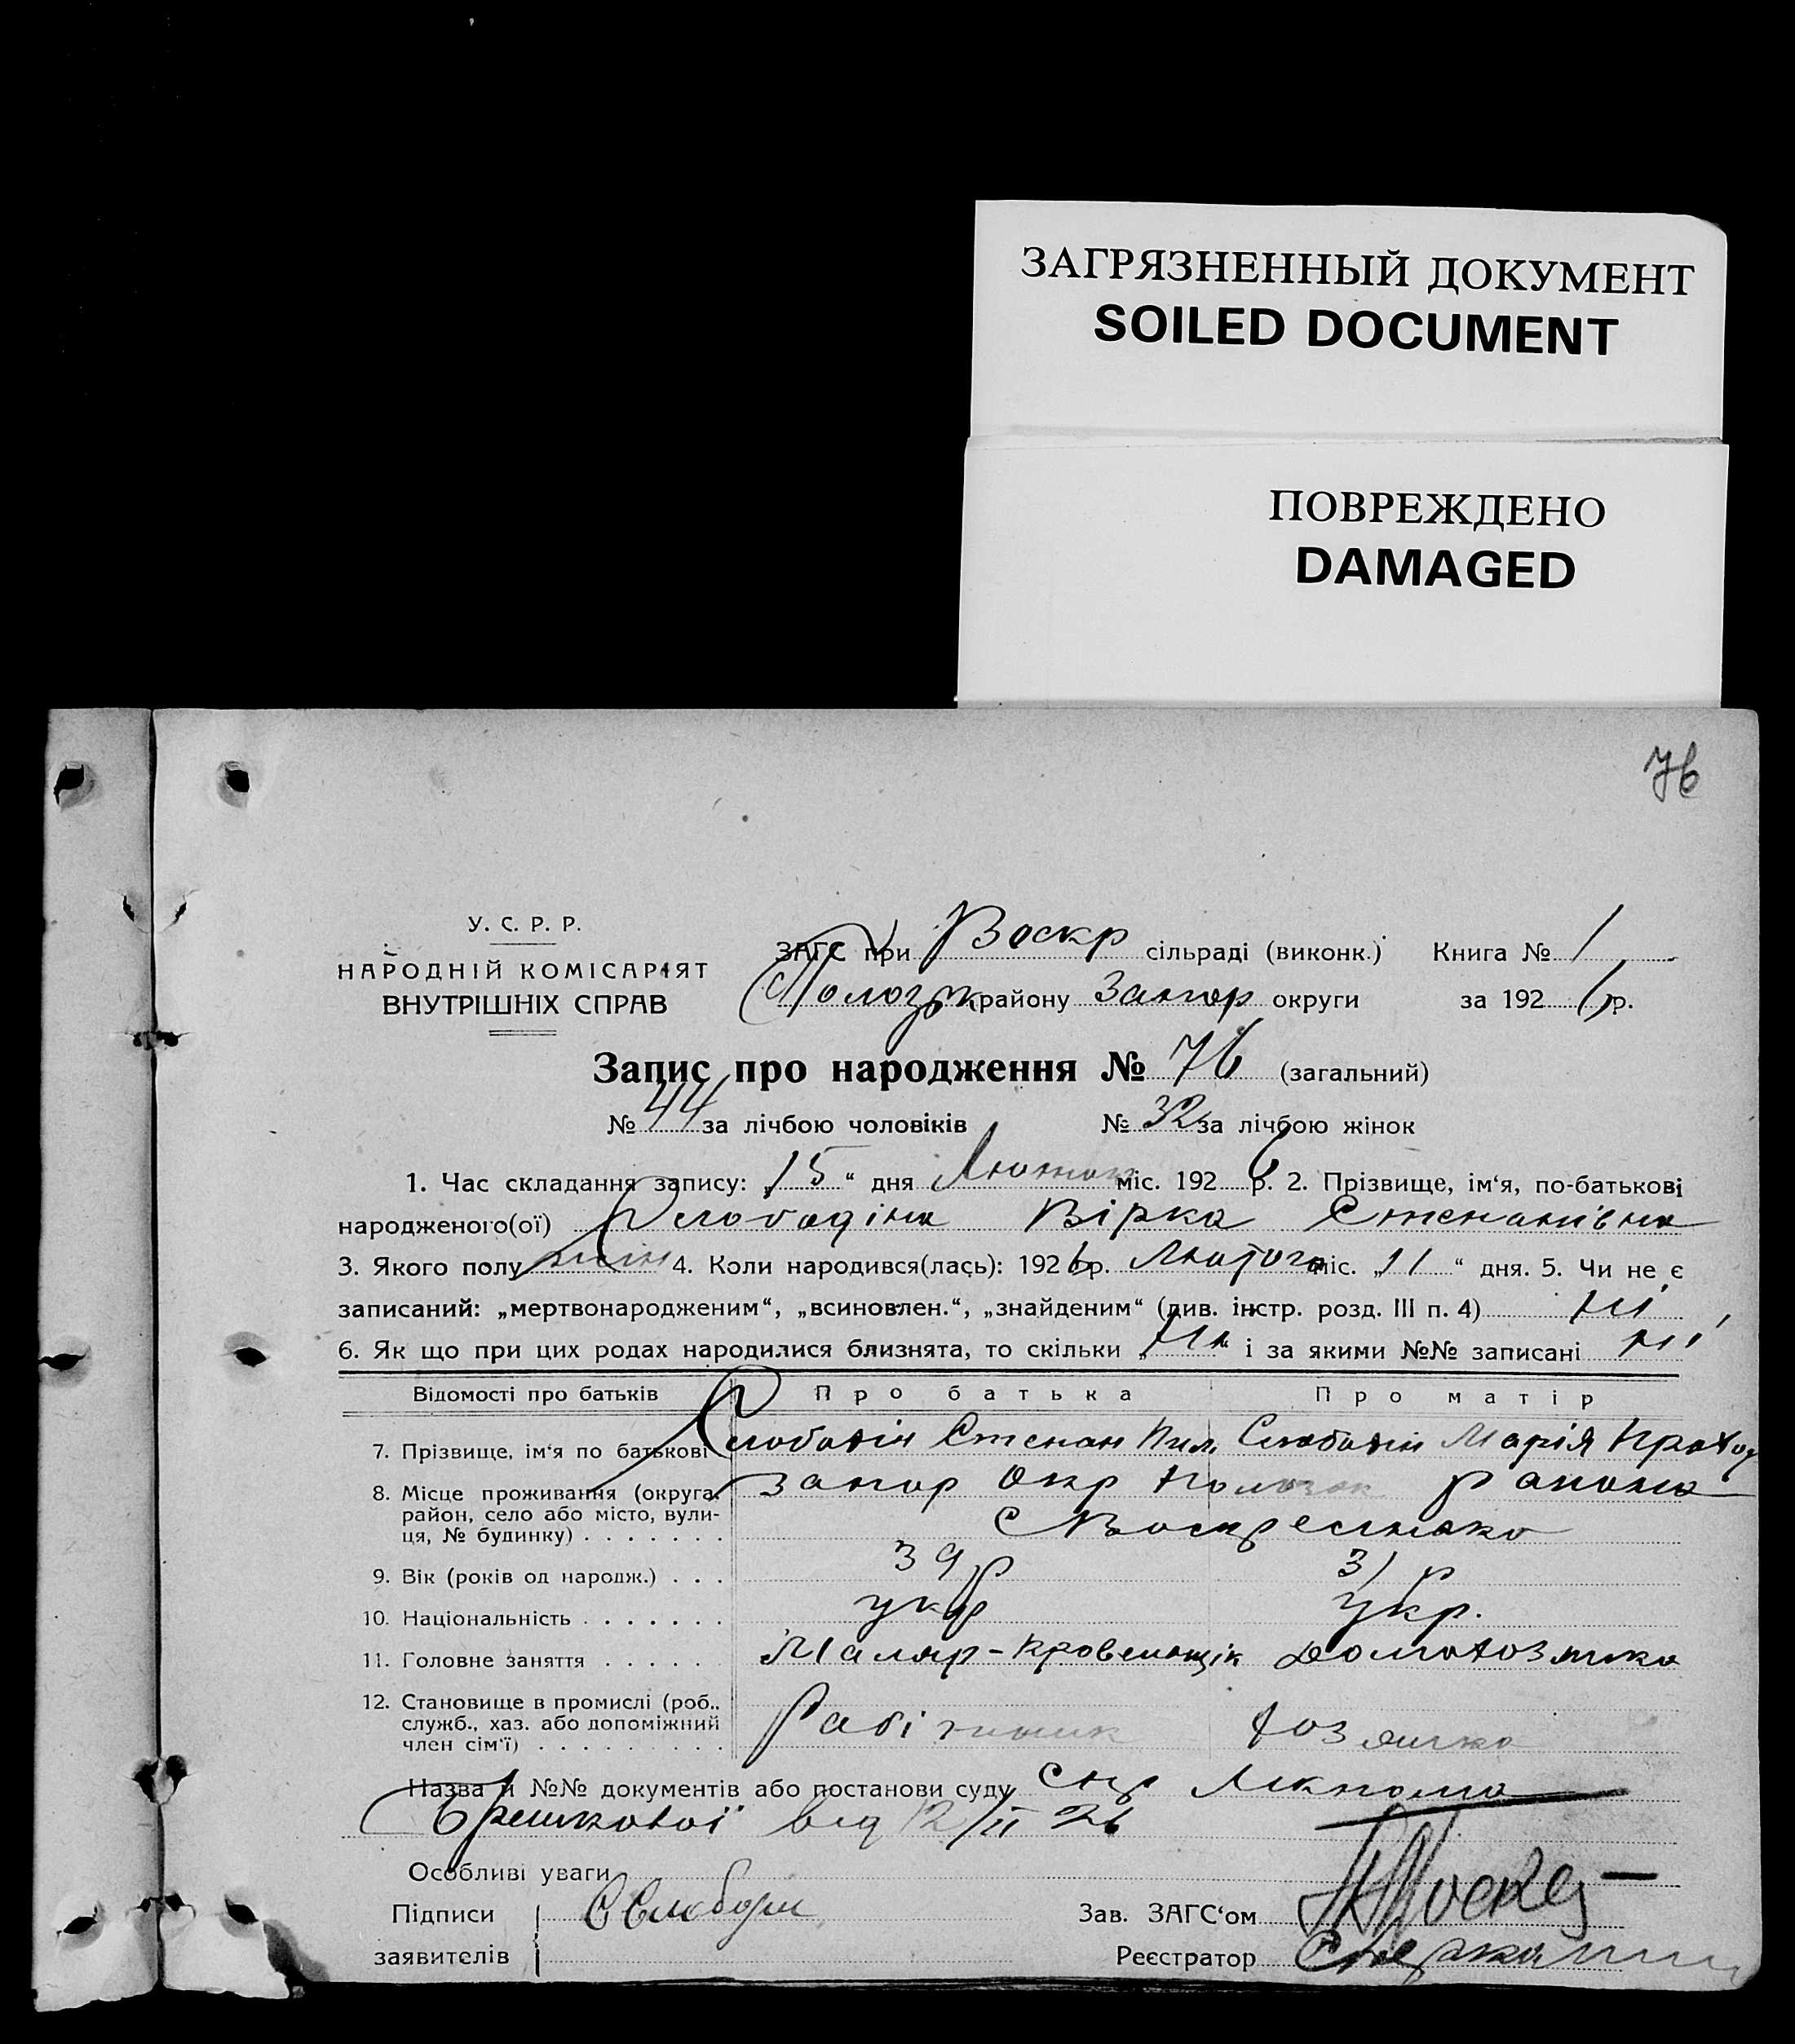 ЗАГРЯЗНЕННЫЙ ДОКУМЕНТ
SOILED DOCUMENT
ПОВРЕЖДЕНО
DAMAGED
76
У. С. Р. Р.
НАРОДНІЙ КОМІСАРІЯТ
ВНУТРІШНІХ СПРАВ
ЗАГС при Воскр сільраді (виконк.) Книга № 1
Пологзьк району Запор округи за 192 6 р.
Запис про народження № 76 (загальний)
№ 44 за лічбою чоловіків № 32 за лічбою жінок
1. Час складання запису: „ 15 “ дня Лютого міс. 192 6 р. 2. Прізвище, ім‘я, по-батькові
народженого(ої) Слободіна Вірка Степанівна
3. Якого полу жін 4. Коли народився(лась): 192 6 р. Лютого міс. „ 11 “ дня. 5. Чи не є
записаний: „мертвонародженим“, „всиновлен.“, „знайденим“ (див. інстр. розд. III п. 4) ні
6. Як що при цих родах народилися близнята, то скільки „ ні “ і за якими №№ записані ні
Відомості про батьків Про батька Про матір
7. Прізвище, ім‘я по батькові Слободін Степан Пил. Слободін Марія Прохор
8. Місце проживання (округа, Запор Окр Пологзьк района
район, село або місто, вули-
ця, № будинку) . . . . . . . С Воскресенско
9. Вік (років од народж.) . . . 39 р 31 р
10. Національність . . . . . . . укр укр.
11. Головне заняття . . . . . . Маляр-кровельщік Домохозяйка
12. Становище в промислі (роб.,
служб., хаз. або допоміжний Рабітник хозяйка
член сім‘ї) . . . . . . . . .
Назва й №№ документів або постанови суду
від 12/II 26
Особливі уваги
Підписи С Слободін Зав. ЗАГС‘ом
заявителів Реєстратор